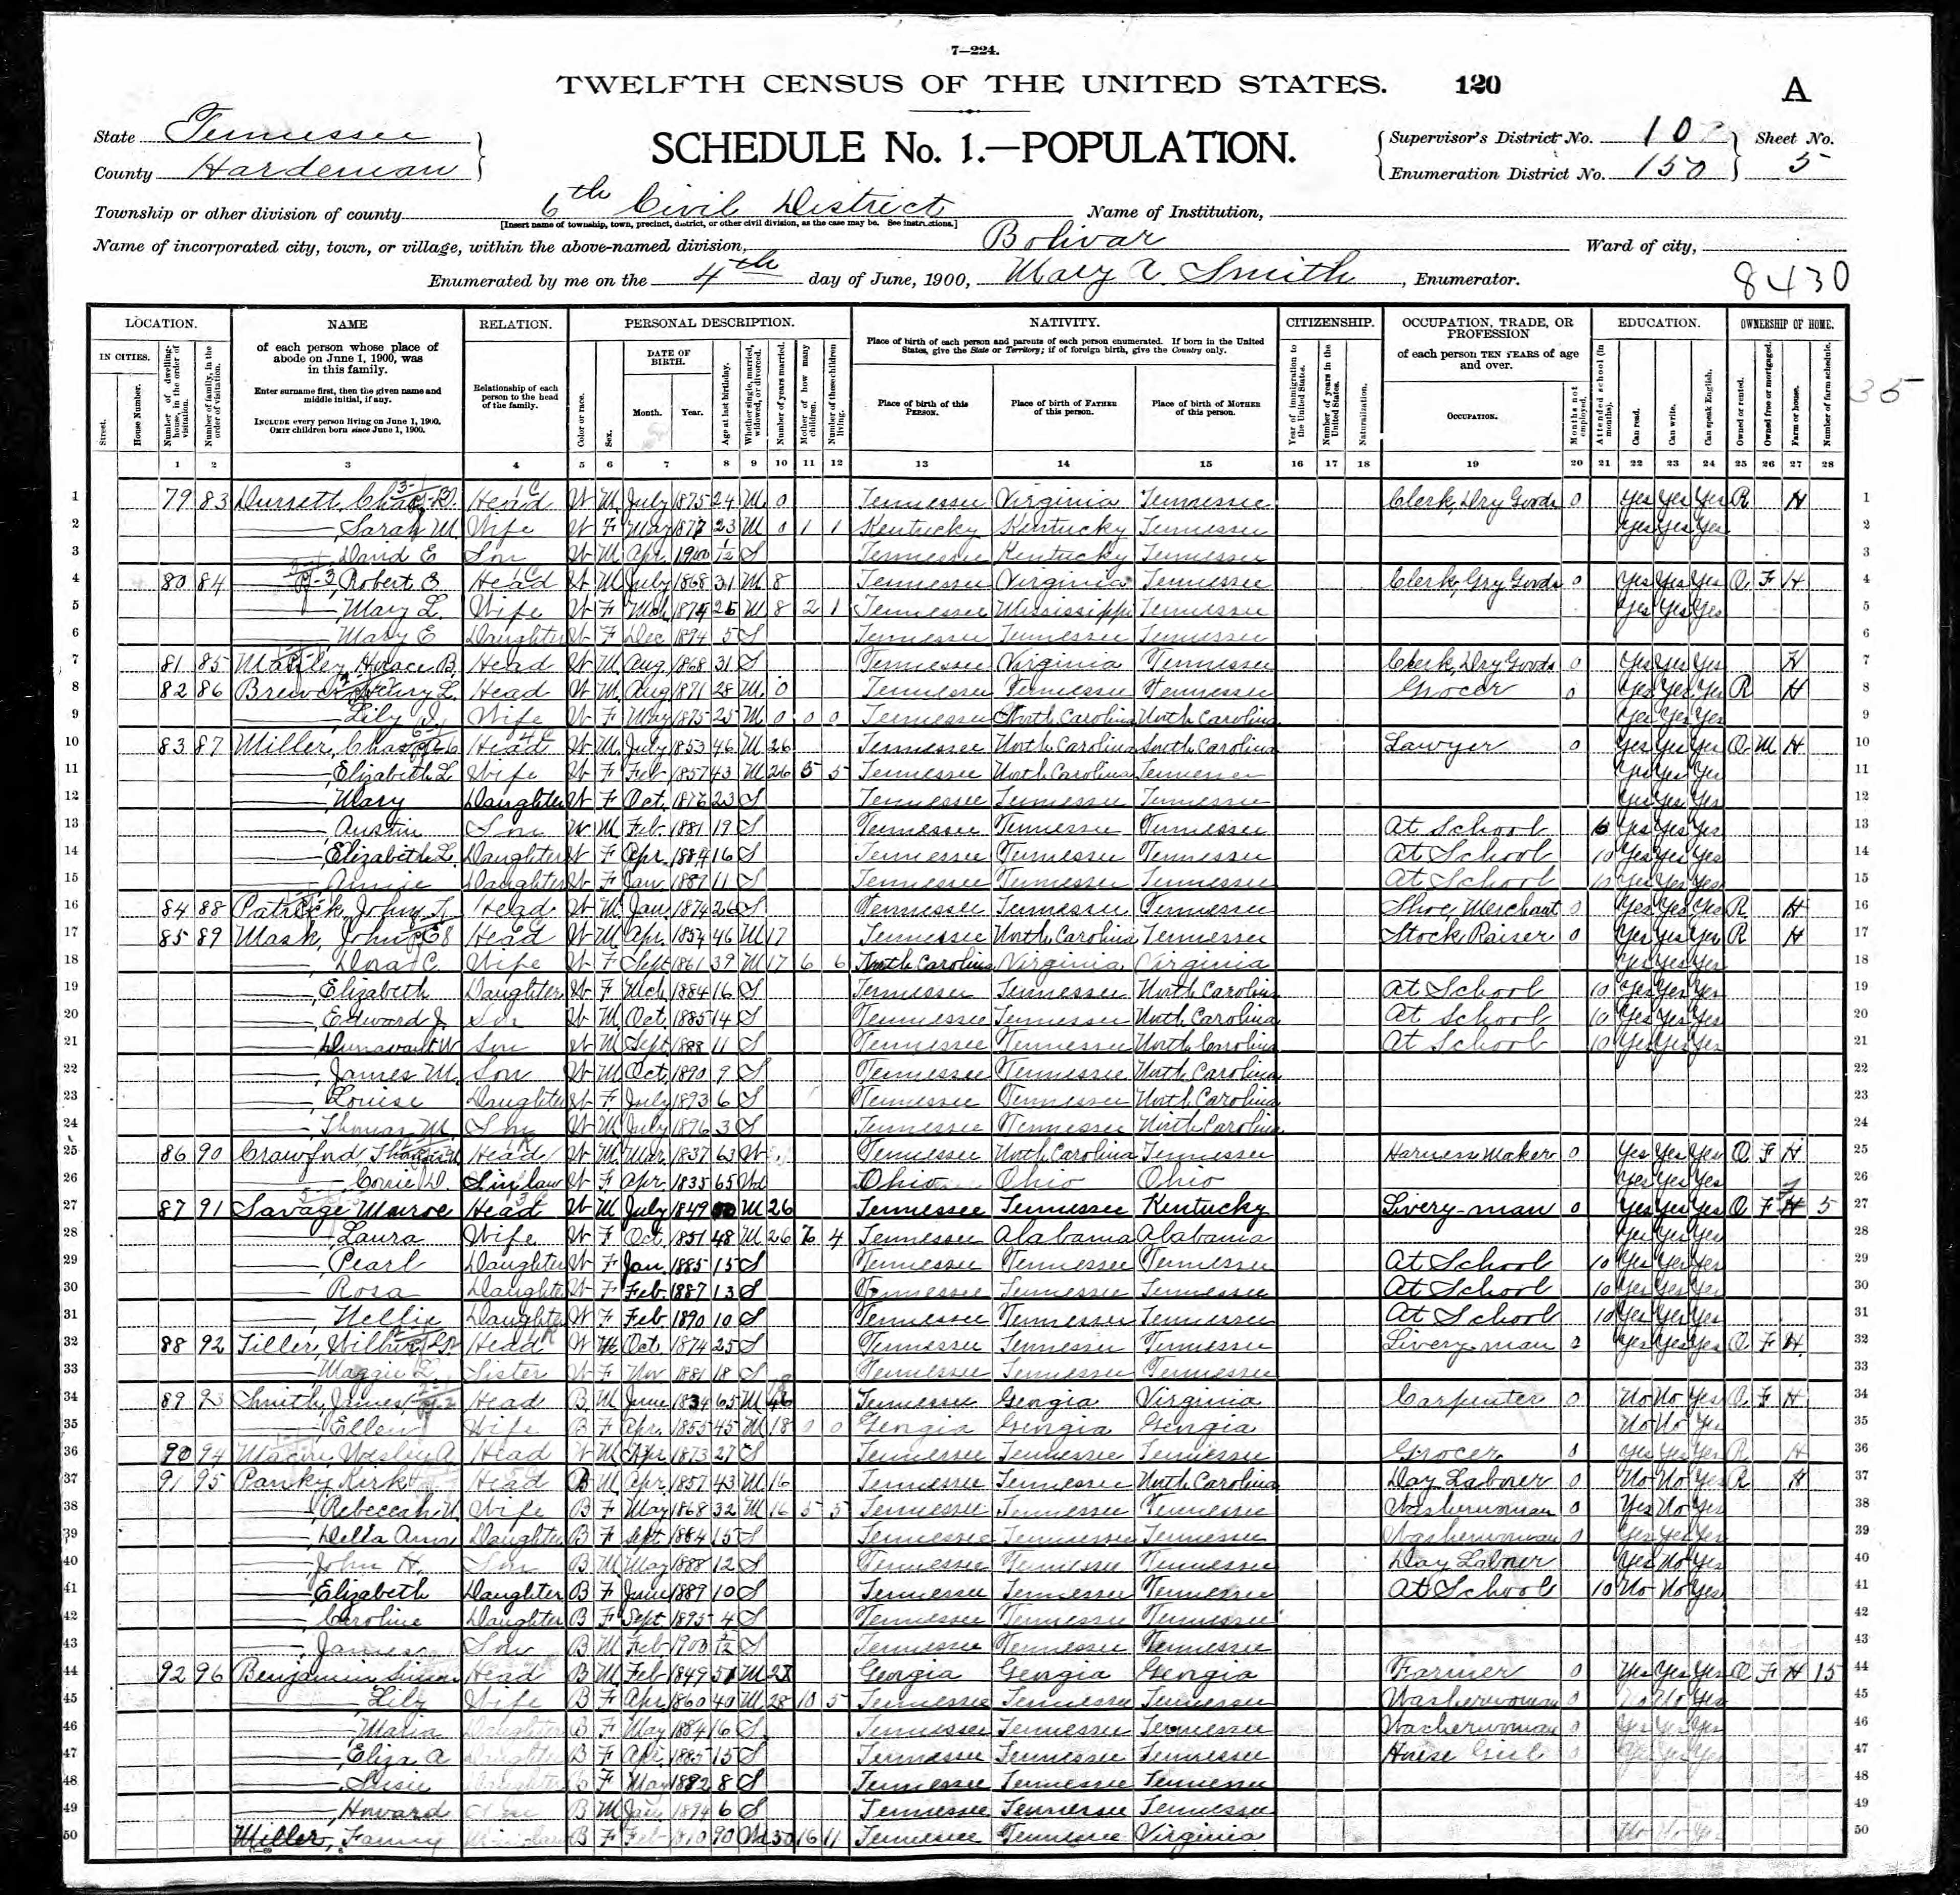 7—224.
TWELFTH CENSUS OF THE UNITED STATES. 120 A
State Tennessee
County Hardeman
SCHEDULE No. 1.—POPULATION.
Supervisor's District No. 10 Sheet No.
Enumeration District No. 150 5
Township or other division of county 6th Civil District Name of Institution,
[Insert name of township, town, precinct, district, or other civil division, as the case may be. See instructions.]
Name of incorporated city, town, or village, within the above-named division, Bolivar Ward of city,
Enumerated by me on the 4th day of June, 1900, Mary A. Smith, Enumerator. 8430
LOCATION. NAME RELATION. PERSONAL DESCRIPTION. NATIVITY. CITIZENSHIP. OCCUPATION, TRADE, OR PROFESSION EDUCATION. OWNERSHIP OF HOME.
IN CITIES. Street. House Number. Number of dwelling-house, in the order of visitation. Number of family, in the order of visitation.
of each person whose place of abode on June 1, 1900, was in this family.
Enter surname first, then the given name and middle initial, if any.
INCLUDE every person living on June 1, 1900. OMIT children born since June 1, 1900.
Relationship of each person to the head of the family.
Color or race. Sex. DATE OF BIRTH. Month. Year. Age at last birthday. Whether single, married, widowed, or divorced. Number of years married. Mother of how many children. Number of these children living.
Place of birth of each person and parents of each person enumerated. If born in the United States, give the State or Territory; if of foreign birth, give the Country only.
Place of birth of this PERSON. Place of birth of FATHER of this person. Place of birth of MOTHER of this person.
Year of immigration to the United States. Number of years in the United States. Naturalization.
of each person TEN YEARS of age and over.
OCCUPATION. Months not employed. Attended school (in months). Can read. Can write. Can speak English. Owned or rented. Owned free or mortgaged. Farm or house. Number of farm schedule.
35
1 2 3 4 5 6 7 8 9 10 11 12 13 14 15 16 17 18 19 20 21 22 23 24 25 26 27 28
1 79 83 Head W M July 1875 24 M 0 Tennessee Virginia Tennessee Clerk, Dry Goods 0 Yes Yes Yes R H 1
2 Sarah M. Wife W F May 1877 23 M 0 1 1 Kentucky Kentucky Tennessee Yes Yes Yes 2
3 David E Son W M Apr 1900 1/12 S Tennessee Kentucky Tennessee 3
4 80 84 Robert E. Head W M July 1868 31 M 8 Tennessee Virginia Tennessee Clerk, Gry Goods 0 Yes Yes Yes O F H 4
5 Mary L. Wife W F Mch 1874 25 M 8 2 1 Tennessee Mississippi Tennessee Yes Yes Yes 5
6 Mary E Daughter W F Dec 1894 5 S Tennessee Tennessee Tennessee 6
7 81 85 Horace B. Head W M Aug 1868 31 S Tennessee Virginia Tennessee Clerk, Dry Goods 0 Yes Yes Yes H 7
8 82 86 Henry L. Head W M Aug 1871 28 M 0 Tennessee Tennessee Tennessee Grocer 0 Yes Yes Yes R H 8
9 Lily Wife W F May 1875 25 M 0 0 0 Tennessee North Carolina North Carolina Yes Yes Yes 9
10 83 87 Miller, Chas Head W M July 1853 46 M 26 Tennessee North Carolina South Carolina Lawyer 0 Yes Yes Yes O M H 10
11 Elizabeth L. Wife W F Feb 1857 43 M 26 5 5 Tennessee North Carolina Tennessee Yes Yes Yes 11
12 Mary Daughter W F Oct. 1876 23 S Tennessee Tennessee Tennessee Yes Yes Yes 12
13 Austin Son W M Feb. 1881 19 S Tennessee Tennessee Tennessee At School 6 Yes Yes Yes 13
14 Elizabeth L. Daughter W F Apr. 1884 16 S Tennessee Tennessee Tennessee At School 10 Yes Yes Yes 14
15 Annie Daughter W F Jan 11 S Tennessee Tennessee Tennessee At School 10 Yes Yes Yes 15
16 84 88 Patrick, John Head W M Jan 1874 26 S Tennessee Tennessee Tennessee Shoe Merchant 0 Yes Yes Yes R H 16
17 85 89 Mask, John Head W M Apr. 1854 46 M 17 Tennessee North Carolina Tennessee Stock Raiser 0 Yes Yes Yes R H 17
18 Dora C. Wife W F Sept 1861 39 M 17 6 6 North Carolina Virginia Virginia Yes Yes Yes 18
19 Elizabeth Daughter W F Mch 1884 16 S Tennessee Tennessee North Carolina At School 10 Yes Yes Yes 19
20 Edward J. Son W M Oct. 1885 14 S Tennessee Tennessee North Carolina At School 10 Yes Yes Yes 20
21 Son W M Sept 1888 11 S Tennessee Tennessee North Carolina At School 10 Yes Yes Yes 21
22 James M. Son W M Oct 1890 9 S Tennessee Tennessee North Carolina 22
23 Louise Daughter W F July 1893 6 S Tennessee Tennessee North Carolina 23
24 Thomas M. Son W M July 1896 3 S Tennessee Tennessee North Carolina 24
25 86 90 Crawford, Head W M Mar. 1837 63 Tennessee North Carolina Tennessee Harness Maker 0 Yes Yes Yes O F H 25
26 Corrie D. Sin law W F Apr 1835 65 Wd Ohio Ohio Ohio Yes Yes Yes 26
27 87 91 Savage Munroe Head W M July 1849 50 M 26 Tennessee Tennessee Kentucky Livery-man 0 Yes Yes Yes O F 5 27
28 Laura Wife W F Oct. 1851 48 M 26 4 Tennessee Alabama Alabama Yes Yes Yes 28
29 Pearl Daughter W F Jan. 1885 15 S Tennessee Tennessee Tennessee At School 10 Yes Yes Yes 29
30 Rosa Daughter W F Feb. 1887 13 S Tennessee Tennessee Tennessee At School 10 Yes Yes Yes 30
31 Nellie Daughter W F Feb 1890 10 S Tennessee Tennessee Tennessee At School 10 Yes Yes Yes 31
32 88 92 Tiller, Head W M Oct. 1874 25 S Tennessee Tennessee Tennessee Livery-man 2 Yes Yes Yes O F H 32
33 Maggie L. Sister W F Nov 1881 18 S Tennessee Tennessee Tennessee 33
34 89 93 Smith, James Head B M June 1834 65 M Tennessee Georgia Virginia Carpenter 0 No No Yes O F H 34
35 Ellen Wife B F Apr. 1855 45 M 18 0 0 Georgia Georgia Georgia No No Yes 35
36 90 94 Wesley A Head W M Apr 1873 27 S Tennessee Tennessee Tennessee Grocer 0 Yes Yes Yes R H 36
37 91 95 Panky, Kirk Head B M Apr. 1857 43 M 16 Tennessee Tennessee North Carolina Day Laborer 0 No No Yes R H 37
38 Rebeccah Wife B F May 1868 32 M 16 5 5 Tennessee Tennessee Tennessee Washerwoman 0 Yes No Yes 38
39 Della Ann Daughter B F Sept 1884 15 S Tennessee Tennessee Tennessee Washerwoman 0 Yes Yes Yes 39
40 John H. Son B M May 1888 12 S Tennessee Tennessee Tennessee Day Laborer Yes No Yes 40
41 Elizabeth Daughter B F June 1889 10 S Tennessee Tennessee Tennessee At School 10 No No Yes 41
42 Caroline Daughter B F Sept 1895 4 S Tennessee Tennessee Tennessee 42
43 James Son B M Feb 1900 S Tennessee Tennessee Tennessee 43
44 92 96 Benjamin Head B M Feb 1849 51 M 28 Georgia Georgia Georgia Farmer 0 Yes Yes Yes O F H 15 44
45 Lily Wife B F Apr 1860 40 M 28 10 5 Tennessee Tennessee Tennessee Washerwoman 0 No No Yes 45
46 Maria Daughter B F May 1884 16 S Tennessee Tennessee Tennessee Washerwoman 0 Yes Yes Yes 46
47 Eliza A Daughter B F Apr. 1885 15 S Tennessee Tennessee Tennessee House Girl 0 Yes Yes Yes 47
48 Susie Daughter B F May 1892 8 S Tennessee Tennessee Tennessee 48
49 Howard Son B M Jan 1894 6 S Tennessee Tennessee Tennessee 49
50 Miller, Fanny B F Feb 1810 90 Wd 50 16 11 Tennessee Tennessee Virginia No No Yes 50